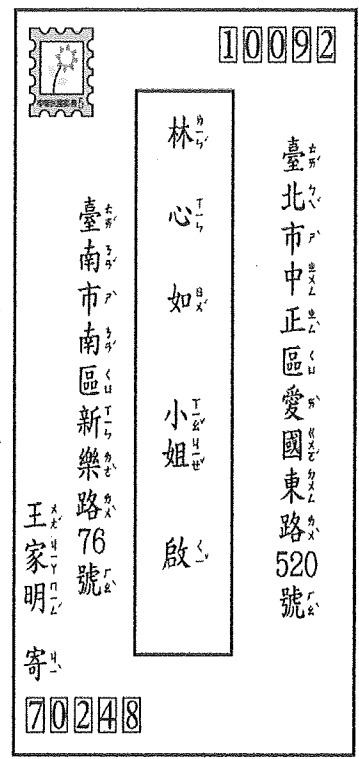 10092
臺北市中正區愛國東路520號
林心如 小姐 啟
臺南市南區新樂路76號
王家明 寄
70248
中華民國郵票 5